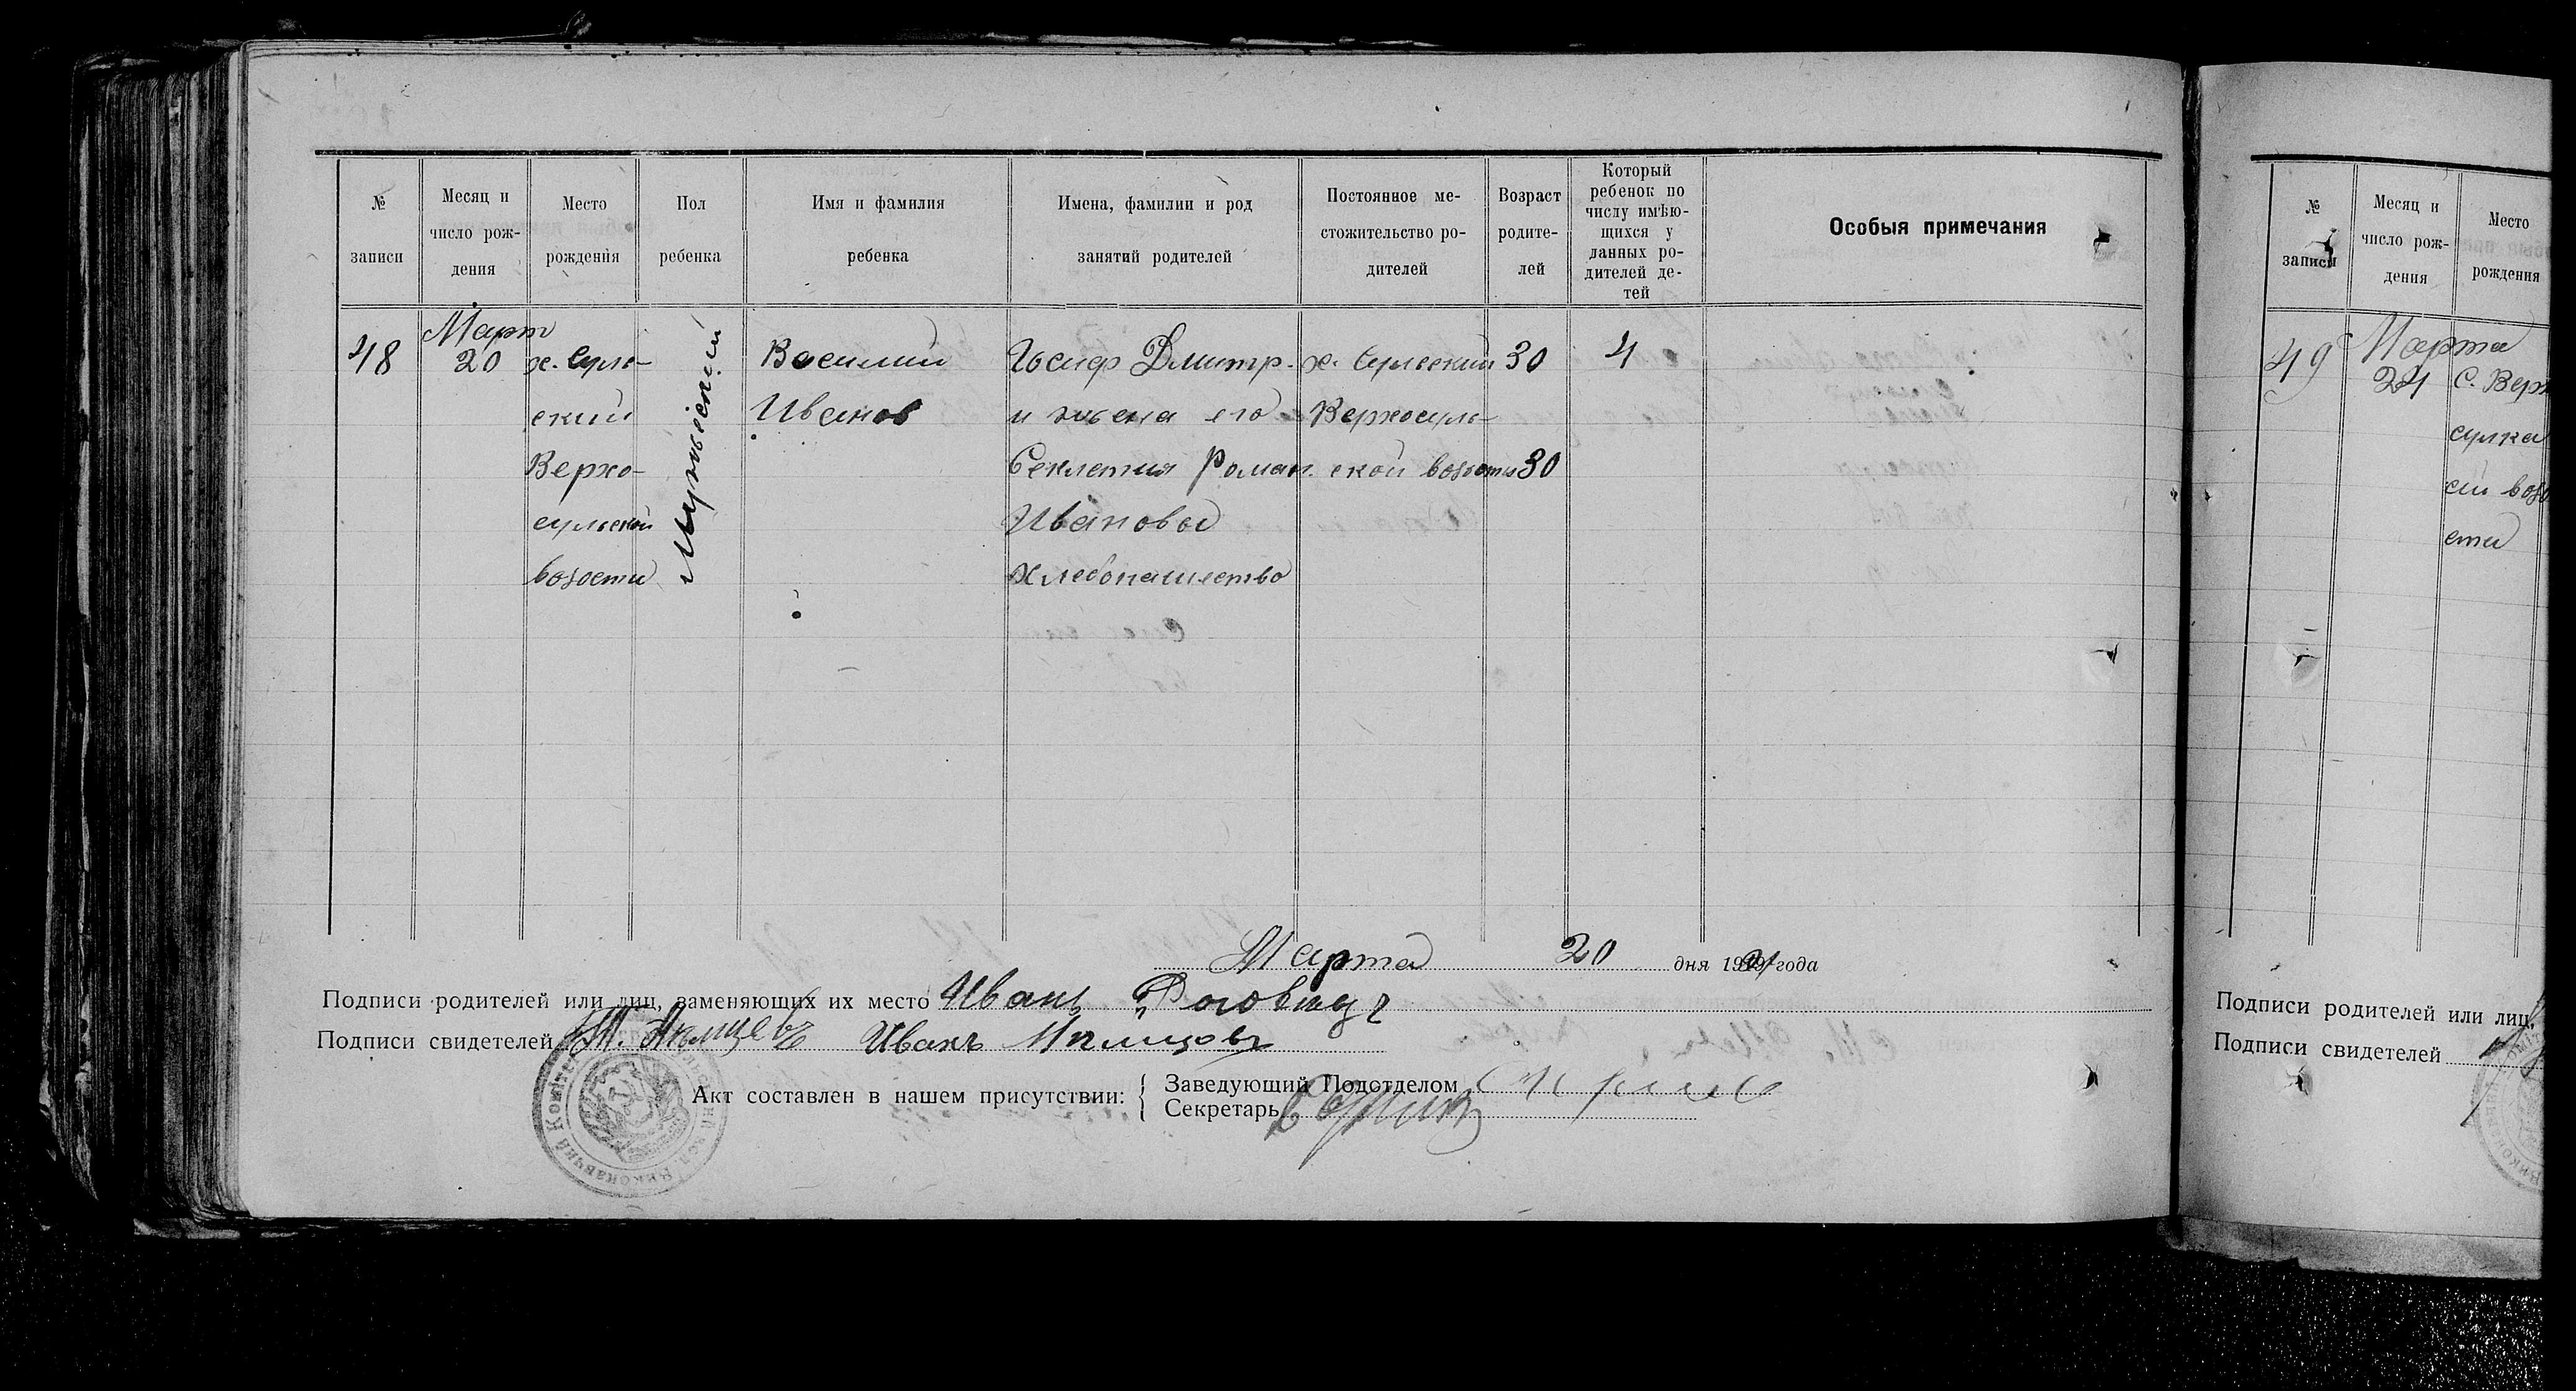 № записи
Месяц и число рож-дения
Место рождения
Пол ребенка
Имя и фамилия ребенка
Имена, фамилии и род занятий родителей
Постоянное ме-стожительство ро-дителей
Возраст родите-лей
Который ребенок по числу имѣю-щихся у данных ро-дителей де-тей
Особыя примечания
48
Март
20
х. Суль-
ский
Верхо-
сульской
волости
Мужиский
Василий
Иванов
Иосиф Дмитр.
и жена его
Секлетия Роман.
Ивановы
Хлебопашество
х. Сульский
Верхосуль-
ской волости
30
30
4
Марта 20 дня 1921 года
Подписи родителей или лиц, заменяющих их место Иванъ
Подписи свидетелей Иванъ
Акт составлен в нашем присутствии:
Заведующий Подотделом
Секретарь
№ записи
Месяц и число рож-дения
Место рождения
49
Марта
24
с. Верх
сулка
ой воло
сти
Подписи родителей или лиц,
Подписи свидетелей